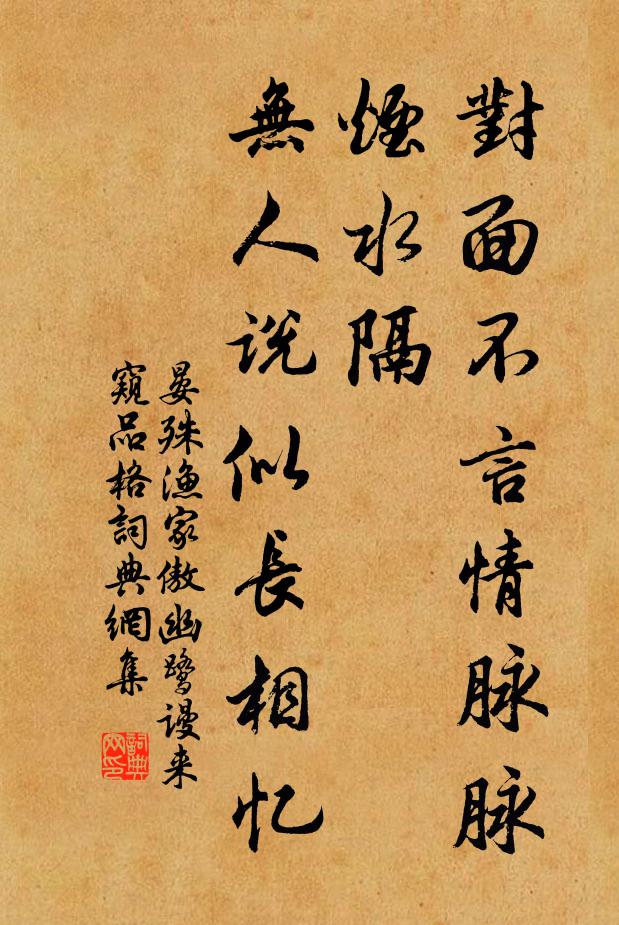 對面不言情脉脉
煙水隔
無人說似長相忆
晏殊漁家傲幽鹭谩来
窺品格詞典網集
詞典网印